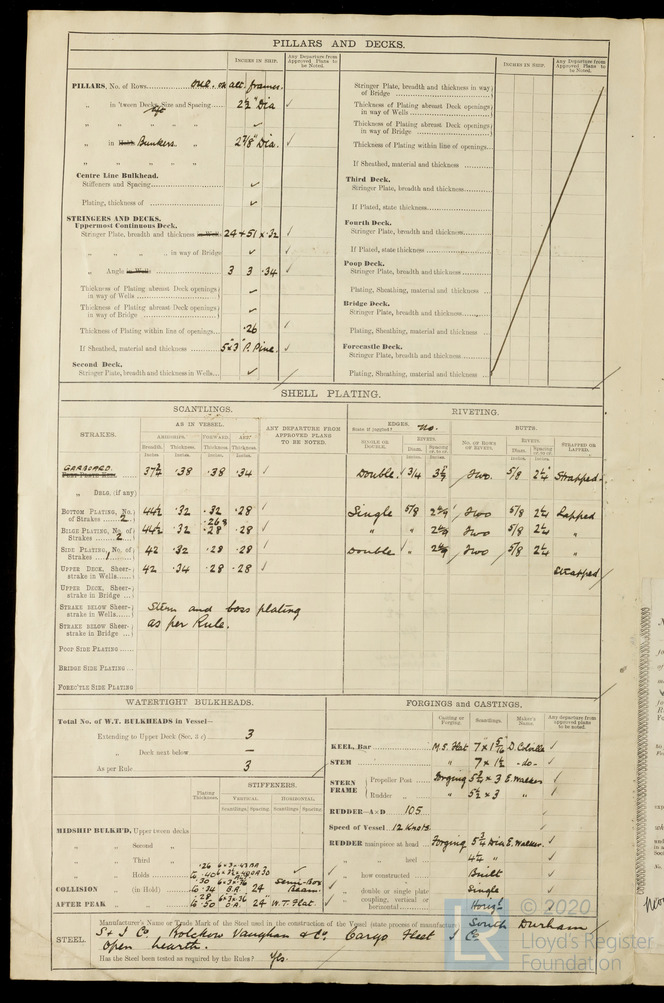 PILLARS AND DECKS.
INCHES IN SHIP.
Any Departure from Approved Plans to be Noted.
PILLARS, No. of Rows one. on alt. frames.
„ in 'tween Decks, Size and Spacing 2½" Dia ✓
„ „ „ „ ✓
„ in Bunkers. 2⅞" Dia. ✓
„ „ „ „
Centre Line Bulkhead.
Stiffeners and Spacing ✓
Plating, thickness of ✓
STRINGERS AND DECKS.
Uppermost Continuous Deck.
Stringer Plate, breadth and thickness in Wells 24 + 51 x .32 ✓
„ „ „ „ in way of Bridge ✓
„ Angle in Wells 3 3 .34 ✓
Thickness of Plating abreast Deck openings in way of Wells ✓
Thickness of Plating abreast Deck openings in way of Bridge ✓
Thickness of Plating within line of openings .26 ✓
If Sheathed, material and thickness 5"x3" P. Pine. ✓
Second Deck.
Stringer Plate, breadth and thickness in Wells ✓
INCHES IN SHIP.
Any Departure from Approved Plans to be Noted.
Stringer Plate, breadth and thickness in way of Bridge
Thickness of Plating abreast Deck openings in way of Wells
Thickness of Plating abreast Deck openings in way of Bridge
Thickness of Plating within line of openings
If Sheathed, material and thickness
Third Deck.
Stringer Plate, breadth and thickness
If Plated, state thickness
Fourth Deck.
Stringer Plate, breadth and thickness
If Plated, state thickness
Poop Deck.
Stringer Plate, breadth and thickness
Plating, Sheathing, material and thickness
Bridge Deck.
Stringer Plate, breadth and thickness
Plating, Sheathing, material and thickness
Forecastle Deck.
Stringer Plate, breadth and thickness
Plating, Sheathing, material and thickness
SHELL PLATING.
SCANTLINGS.
RIVETING.
STRAKES.
AS IN VESSEL.
ANY DEPARTURE FROM APPROVED PLANS TO BE NOTED.
EDGES. State if joggled? no.
BUTTS.
AMIDSHIPS. FORWARD. AFT.
Breadth. Thickness. Thickness. Thickness.
SINGLE OR DOUBLE. RIVETS. Diam. Spacing cr. to cr.
No. OF ROWS OF RIVETS. RIVETS. Diam. Spacing cr. to cr. STRAPPED OR LAPPED.
Inches Inches Inches Inches
GARBOARD. 37¾ .38 .38 .34 ✓ Double. 3/4 Two 5/8 2¼ Strapped.
„ DBLG. (if any)
BOTTOM PLATING, No. of Strakes 2 44½ .32 .32 .28 ✓ Single 5/8 Two 5/8 2¼ Lapped
BILGE PLATING, No. of Strakes 2 44½ .32 .28 .28 ✓ „ „ Two 5/8 2¼ „
SIDE PLATING, No. of Strakes 1 42 .32 .28 .28 ✓ Double „ Two 5/8 2¼ „
UPPER DECK, Sheerstrake in Wells 42 .34 .28 .28 ✓ Strapped
UPPER DECK, Sheerstrake in Bridge
STRAKE BELOW Sheerstrake in Wells Stem and boss plating
STRAKE BELOW Sheerstrake in Bridge as per Rule.
POOP SIDE PLATING
BRIDGE SIDE PLATING
FOREC'TLE SIDE PLATING
WATERTIGHT BULKHEADS.
Total No. of W.T. BULKHEADS in Vessel—
Extending to Upper Deck (Sec. 3 c) 3
„ Deck next below —
As per Rule 3
STIFFENERS.
Plating Thickness. VERTICAL. HORIZONTAL.
Scantlings. Spacing. Scantlings. Spacing.
MIDSHIP BULKH'D, Upper 'tween decks
„ „ Second „
„ „ Third „
„ „ Holds
COLLISION „ (in Hold) 24 Semi-Box Beam.
AFTER PEAK „ 24" W.T. Flat.
FORGINGS and CASTINGS.
Casting or Forging. Scantlings. Maker's Name. Any departure from approved plans to be noted.
KEEL, Bar M.S. Flat 7" x 1 5/16" D. Colville ✓
STEM „ 7 x 1½ -do- ✓
STERN FRAME Propeller Post Forging E. Walker ✓
Rudder „ „ 5½ x 3 „ ✓
RUDDER—A×D 105.
Speed of Vessel 12 Knots.
RUDDER mainpiece at head Forging 5¾ Dia E. Walker. ✓
„ „ heel „ ✓
„ how constructed Built ✓
„ double or single plate Single ✓
„ coupling, vertical or horizontal ✓
STEEL.
Manufacturer's Name or Trade Mark of the Steel used in the construction of the Vessel (state process of manufacture) South Durham
S + I Co. Bolckow Vaughan & Co. Cargo Fleet I Co.
Open hearth.
Has the Steel been tested as required by the Rules? Yes.
© 2020
Lloyd's Register
Foundation